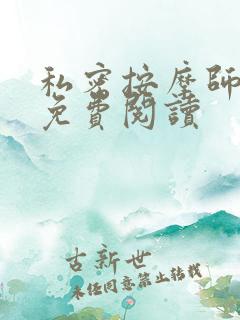 私密按摩師
免費閱讀
古新世
未經同意禁止轉載